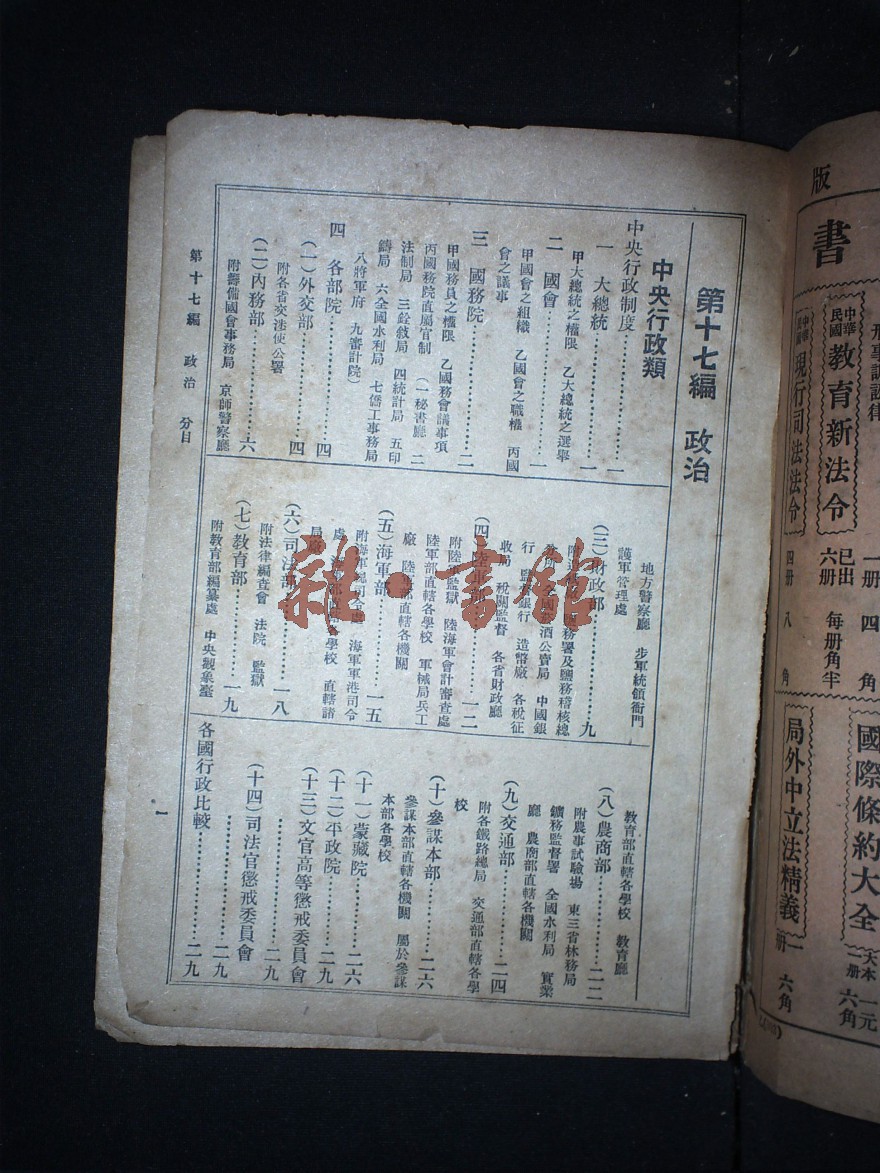 第十七編　政治
中央行政類
中央行政制度……………一
一　大總統……………一
甲大總統之權限　乙大總統之選舉
二　國會……………一
甲國會之組織　乙國會之職權　丙國
會之議事
三　國務院……………二
甲國務員之權限　乙國務會議事項
丙國務院直屬官制　（一秘書廳　二
法制局　三銓敍局　四統計局　五印
鑄局　六全國水利局　七僑工事務局
八將軍府　九審計院）
四　各部院……………四
（一）外交部……………四
附各省交涉使公署
（二）內務部……………六
附籌備國會事務局　京師警察廳
地方警察廳　步軍統領衙門
護軍管理處
（三）財政部……………九
務署及鹽務稽核總
酒公賣局　中國銀
行　銀行　造幣廠　各稅征
收局　稅關監督　各省財政廳
（四）陸軍部……………一二
附陸軍監獄　陸海軍會計審查處
陸軍部直轄各學校　軍械局兵工
廠　陸軍部直轄各機關
（五）海軍部……………一五
附海軍總司令處　海軍軍港司令
處　學校　直轄諸
局廠
（六）司法部……………一八
附法律編查會　法院　監獄
（七）教育部……………一九
附教育部編纂處　中央觀象臺
教育部直轄各學校　教育廳
（八）農商部……………二二
附農事試驗場　東三省林務局
鑛務監督署　全國水利局　實業
廳　農商部直轄各機關
（九）交通部……………二四
附各鐵路總局　交通部直轄各學
校
（十）參謀本部……………二六
參謀本部直轄各機關　屬於參謀
本部各學校
（十一）蒙藏院……………二六
（十二）平政院……………二九
（十三）文官高等懲戒委員會
……………二九
（十四）司法官懲戒委員會
……………二九
各國行政比較……………二九
第十七編　政治　分目
一
版
書
中華民國教育新法令
已出六册　每册角半
現行司法法令
四册　八角
一册　四角
國際條約大全
大本一册　一元六角
局外中立法精義
一册　六角
雜·書館